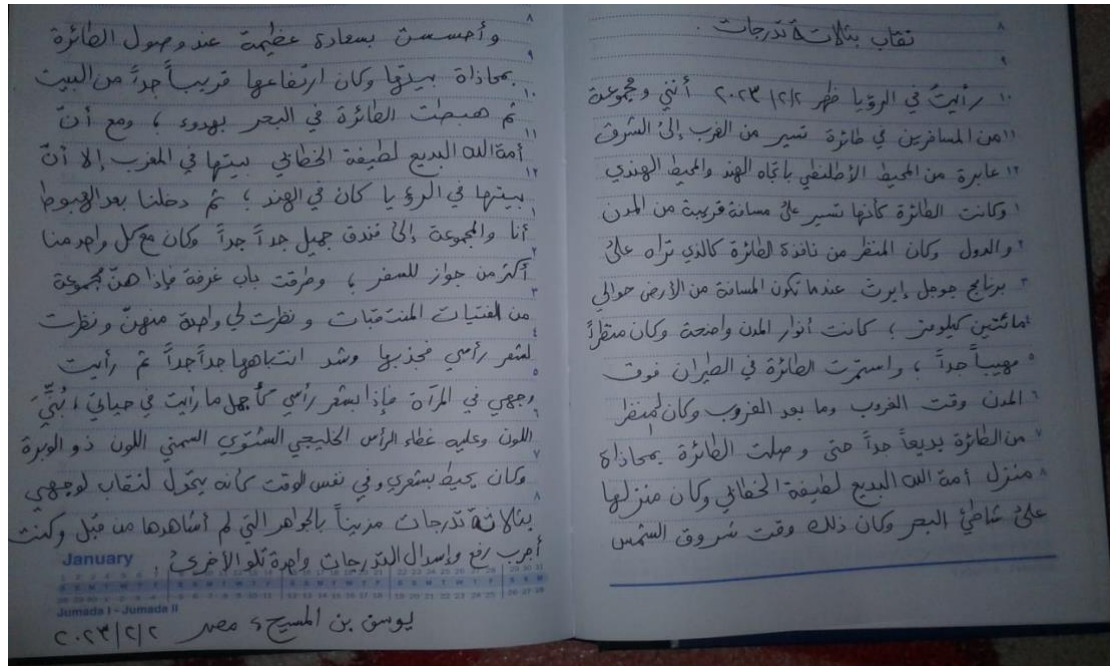 نقاب بثلاثة تدرجات .
رأيتُ في الرؤيا ظهر ٢/٢/٢٠٢٣ أنني ومجموعة
من المسافرين في طائرة تسير من الغرب إلى الشرق
عابرة من المحيط الأطلنطي باتجاه الهند والمحيط الهندي
وكانت الطائرة كأنها تسير على مسافة قريبة من المدن
والدول وكان المنظر من نافذة الطائرة كالذي تراه على
برنامج جوجل إيرث عندما تكون المسافة من الأرض حوالي
مائتين كيلومتر ؛ كانت أنوار المدن واضحة وكان منظراً
مهيباً جداً ، واستمرت الطائرة في الطيران فوق
المدن وقت الغروب وما بعد الغروب وكان المنظر
من الطائرة بديعاً جداً حتى وصلت الطائرة بمحاذاة
منزل أمة الله البديع لطيفة الخطابي وكان منزلها
على شاطئ البحر وكان ذلك وقت شروق الشمس
وأحسست بسعادة عظيمة عند وصول الطائرة
بمحاذاة بيتها وكان ارتفاعها قريباً جداً من البيت
ثم هبطت الطائرة في البحر بهدوء ، ومع أنّ
أمة الله البديع لطيفة الخطابي بيتها في المغرب إلا أنّ
بيتها في الرؤيا كان في الهند ؛ ثم دخلنا بعد الهبوط
أنا والمجموعة إلى فندق جميل جداً جداً وكان مع كل واحد منا
أكثر من جواز للسفر ، وطرقت باب غرفة فإذا هنّ مجموعة
من الفتيات المنتقبات ونظرت لي واحدة منهنّ ونظرت
لشعر رأسي فجذبها وشد انتباهها جداً جداً ثم رأيت
وجهي في المرآة فإذا بشعر رأسي كأجمل ما رأيت في حياتي ، بُنِّيَّ
اللون وعليه غطاء الرأس الخليجي الشتوي السمني اللون ذو الوبرة
وكان يحيط بشعري وفي نفس الوقت كأنه يتحول لنقاب لوجهي
بثلاثة تدرجات مزيناً بالجواهر التي لم أشاهدها من قبل وكنت
أجرب رفع وإسدال التدرجات واحدة تلو الأخرى .
January
Jumada I - Jumada II
يوسف بن المسيح ، مصر ٢/٢/٢٠٢٣